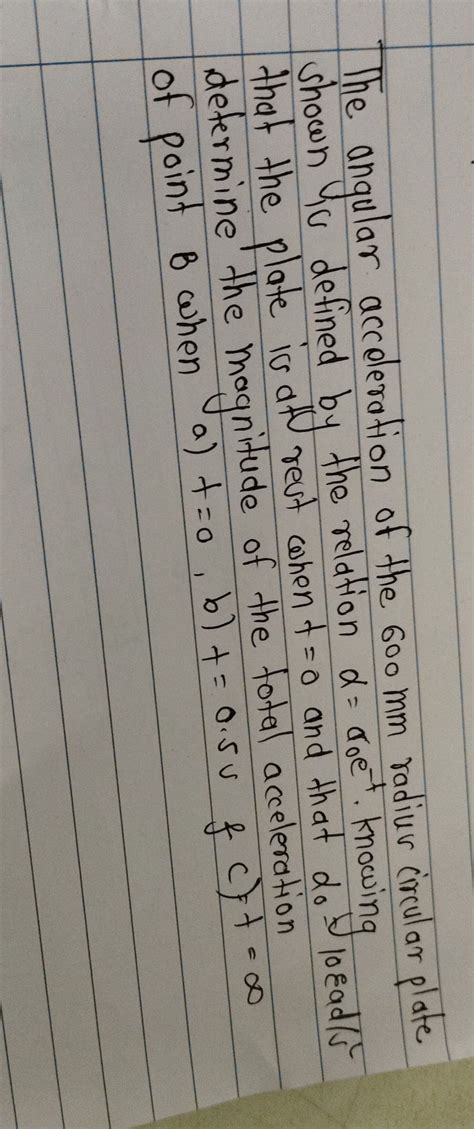 The angular acceleration of the 600 mm radius circular plate
shown is defined by the relation α = α₀e⁻ᵗ. knowing
that the plate is at rest when t=0 and that α₀ = 10 rad/s²
determine the magnitude of the total acceleration
of point B when a) t=0, b) t=0.5s & c) t=∞